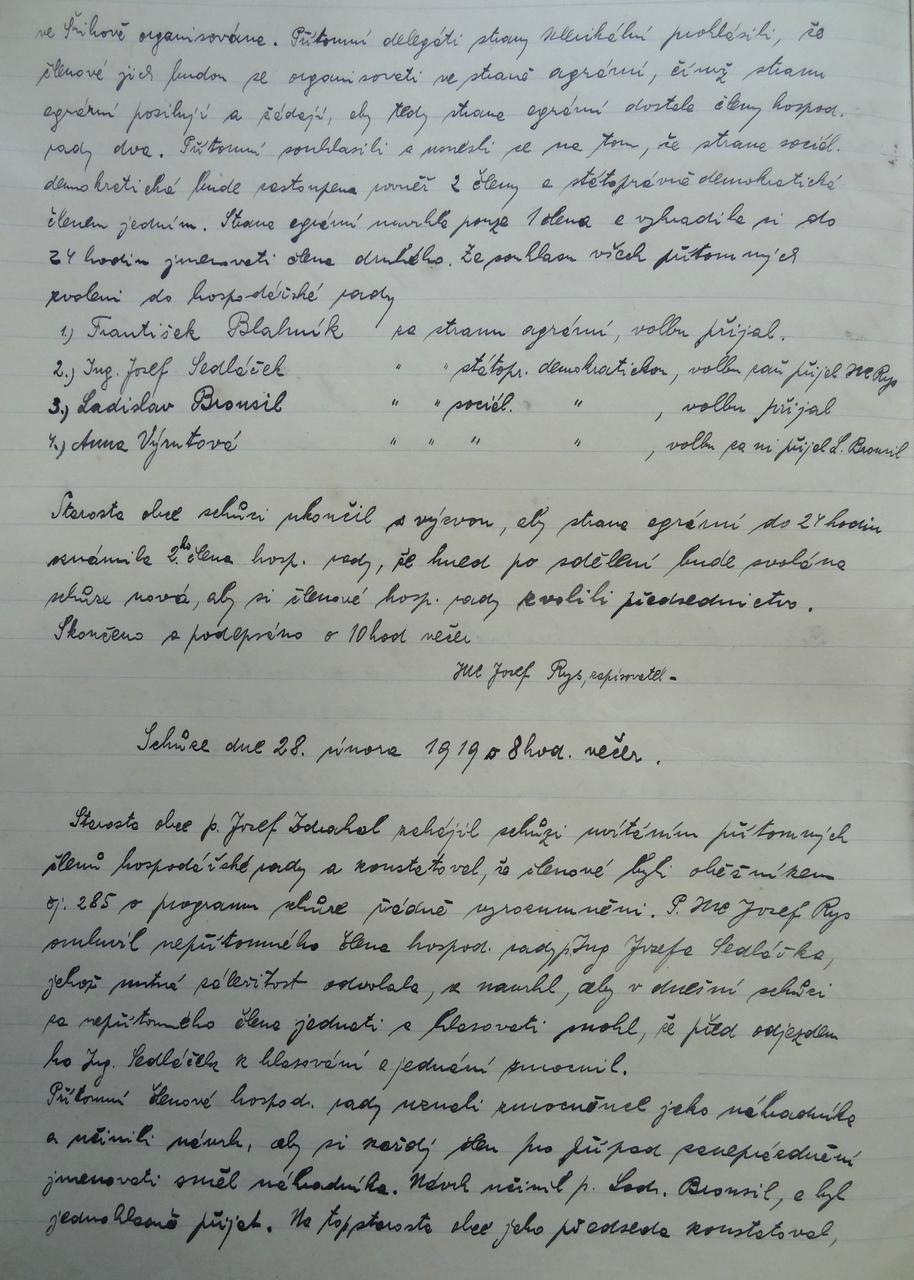 ve Šrihově organisována. Přítomní delegáti strany klerikální prohlásili, že
členové jich budou se organisovati ve straně agrární, čímž stranu
agrární posilují a žádají, aby tedy strana agrární dostala členy hospod.
rady dva. Přítomní souhlasili a usnesli se na tom, že strana sociál.
demokratická bude zastoupena rovněž 2 členy a státoprávně demokratická
členem jedním. Strana agrární navrhla pouze 1 člena a vyhradila si do
24 hodin jmenovati člena druhého. Za souhlasu všech přítomných
zvoleni do hospodářské rady
1.) František Blahník za stranu agrární, volbu přijal.
2.) Ing. Josef Sedláček " " státopr. demokratickou, volbu zaň přijal MC Rys
3.) Ladislav Brousil " " sociál. " , volbu přijal
4.) Anna Výrutová " " " " , volbu za ni přijal L. Brousil
Starosta obce schůzi ukončil s výzvou, aby strana agrární do 24 hodin
oznámila 2.ho člena hosp. rady, že hned po sdělení bude svolána
schůze nová, aby si členové hosp. rady zvolili předsednictvo.
Skončeno a podepsáno o 10 hod večer
MC Josef Rys, zapisovatel -
Schůze dne 28. února 1919 o 8 hod. večer.
Starosta obce p. Josef Zdrahal zahájil schůzi uvítáním přítomných
členů hospodářské rady a konstatoval, že členové byli oběžníkem
čj. 285 o programu schůze řádně vyrozumněni. P. MC Josef Rys
omluvil nepřítomného člena hospod. rady p. Ing Josefa Sedláčka,
jehož nutná záležitost odvolala, a navrhl, aby v dnešní schůzi
za nepřítomného člena jednati a hlasovati mohl, že před odjezdem
ho Ing. Sedláček k hlasování a jednání zmocnil.
Přítomní členové hospod. rady uznali zmocněnce jeho náhradníka
a učinili návrh, aby si každý člen pro případ zaneprázdnění
jmenovati směl náhradníka. Návrh učinil p. Lad. Brousil, a byl
jednohlasně přijat. Na to p. starosta obce jeho předseda konstatoval,